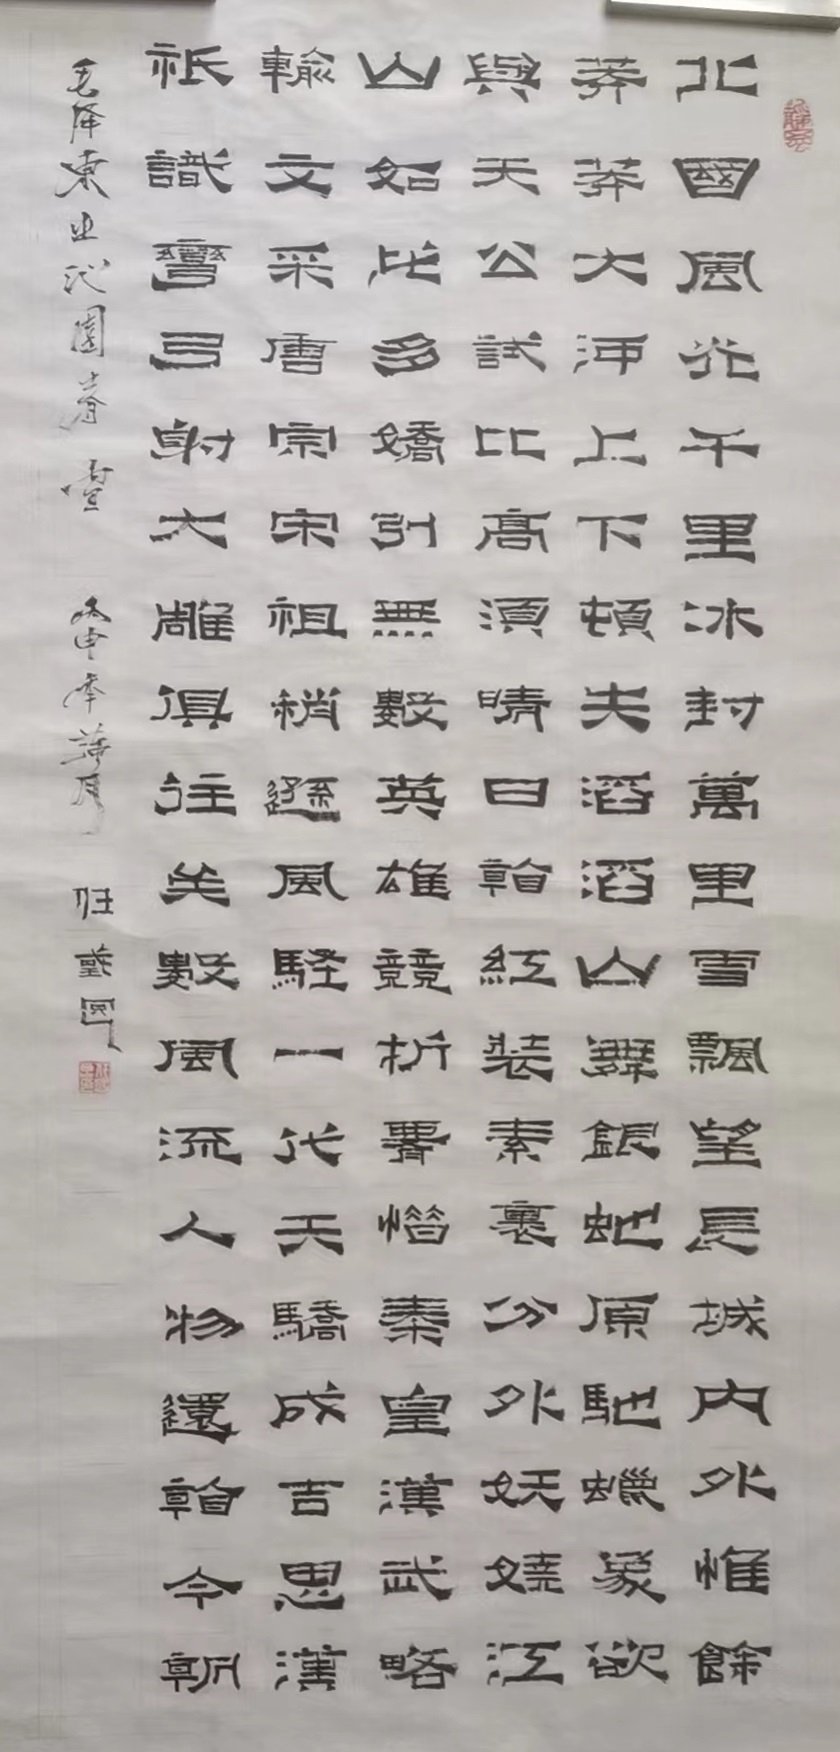 北國風光千里冰封萬里雪飄望長城內外惟餘
莽莽大河上下頓失滔滔山舞銀蛇原馳蠟象欲
與天公試比高須晴日看紅裝素裹分外妖嬈江
山如此多嬌引無數英雄競折腰惜秦皇漢武略
輸文采唐宗宋祖稍遜風騷一代天驕成吉思漢
祇識彎弓射大雕俱往矣數風流人物還看今朝
毛泽東之沁園春雪 丙申年月 任